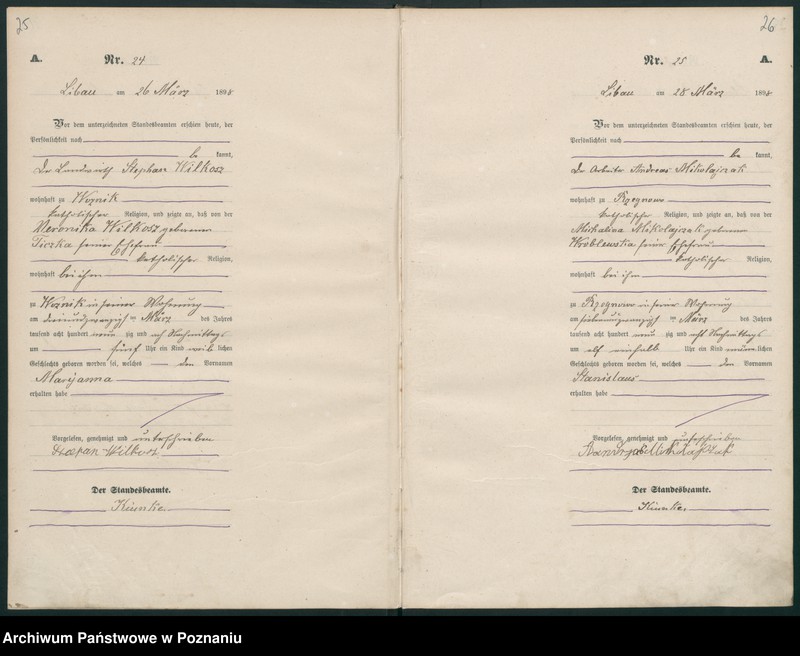 25
A.
Nr. 24
Libau am 26 März 1898
Vor dem unterzeichneten Standesbeamten erschien heute, der
Persönlichkeit nach
be kannt,
Der Landwirth Stephan Wilkosz
wohnhaft zu Woznik
katholischer Religion, und zeigte an, daß von der
Veronika Wilkosz geborenen
Ticzka seiner Ehefrau
katholischer Religion,
wohnhaft bei ihm
zu Woznik in seiner Wohnung
am dreiundzwanzigsten März des Jahres
tausend acht hundert neun zig und acht Nachmittags
um fünf Uhr ein Kind weib lichen
Geschlechts geboren worden sei, welches den Vornamen
Maryanna
erhalten habe
Vorgelesen, genehmigt und unterschrieben
Wilkosz
Der Standesbeamte.
26
A.
Nr. 25
Libau am 28 März 1898
Vor dem unterzeichneten Standesbeamten erschien heute, der
Persönlichkeit nach
be kannt,
Der Arbeiter Andreas Mikolajczak
wohnhaft zu Rzegnowo
katholischer Religion, und zeigte an, daß von der
Michalina Mikolajczak geborenen
Wroblewska seiner Ehefrau
katholischer Religion,
wohnhaft bei ihm
zu Rzegnowo in seiner Wohnung
am siebenundzwanzigsten März des Jahres
tausend acht hundert neun zig und acht Nachmittags
um elf einhalb Uhr ein Kind männ lichen
Geschlechts geboren worden sei, welches den Vornamen
Stanislaus
erhalten habe
Vorgelesen, genehmigt und unterschrieben
Der Standesbeamte.
Archiwum Państwowe w Poznaniu